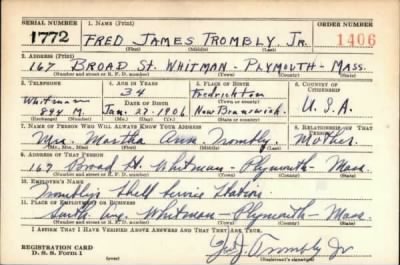 SERIAL NUMBER 1. NAME (Print) ORDER NUMBER
1772 FRED JAMES TROMBLY, JR. 1406
(First) (Middle) (Last)
2. ADDRESS (Print)
167 BROAD ST. WHITMAN - PLYMOUTH - MASS.
(Number and street or R. F. D. number) (Town) (County) (State)
3. TELEPHONE 4. AGE IN YEARS 5. PLACE OF BIRTH 6. COUNTRY OF CITIZENSHIP
Whitman 34 Fredrickton
DATE OF BIRTH (Town or county)
M. Jan. 27 1906 New Brunswick U.S.A.
(Exchange) (Number) (Mo.) (Day) (Yr.) (State or country)
7. NAME OF PERSON WHO WILL ALWAYS KNOW YOUR ADDRESS 8. RELATIONSHIP OF THAT PERSON
Mrs. Martha Ann Trombly. Mother
(Mr., Mrs., Miss) (First) (Middle) (Last)
9. ADDRESS OF THAT PERSON
167 Broad St. Whitman - Plymouth - Mass.
(Number and street or R. F. D. number) (Town) (County) (State)
10. EMPLOYER'S NAME
Trombly's Shell Service Station
11. PLACE OF EMPLOYMENT OR BUSINESS
South Ave. Whitman - Plymouth - Mass.
(Number and street or R. F. D. number) (Town) (County) (State)
I AFFIRM THAT I HAVE VERIFIED ABOVE ANSWERS AND THAT THEY ARE TRUE.
REGISTRATION CARD
D. S. S. Form 1 (over) Trombly Jr
(Registrant's signature)